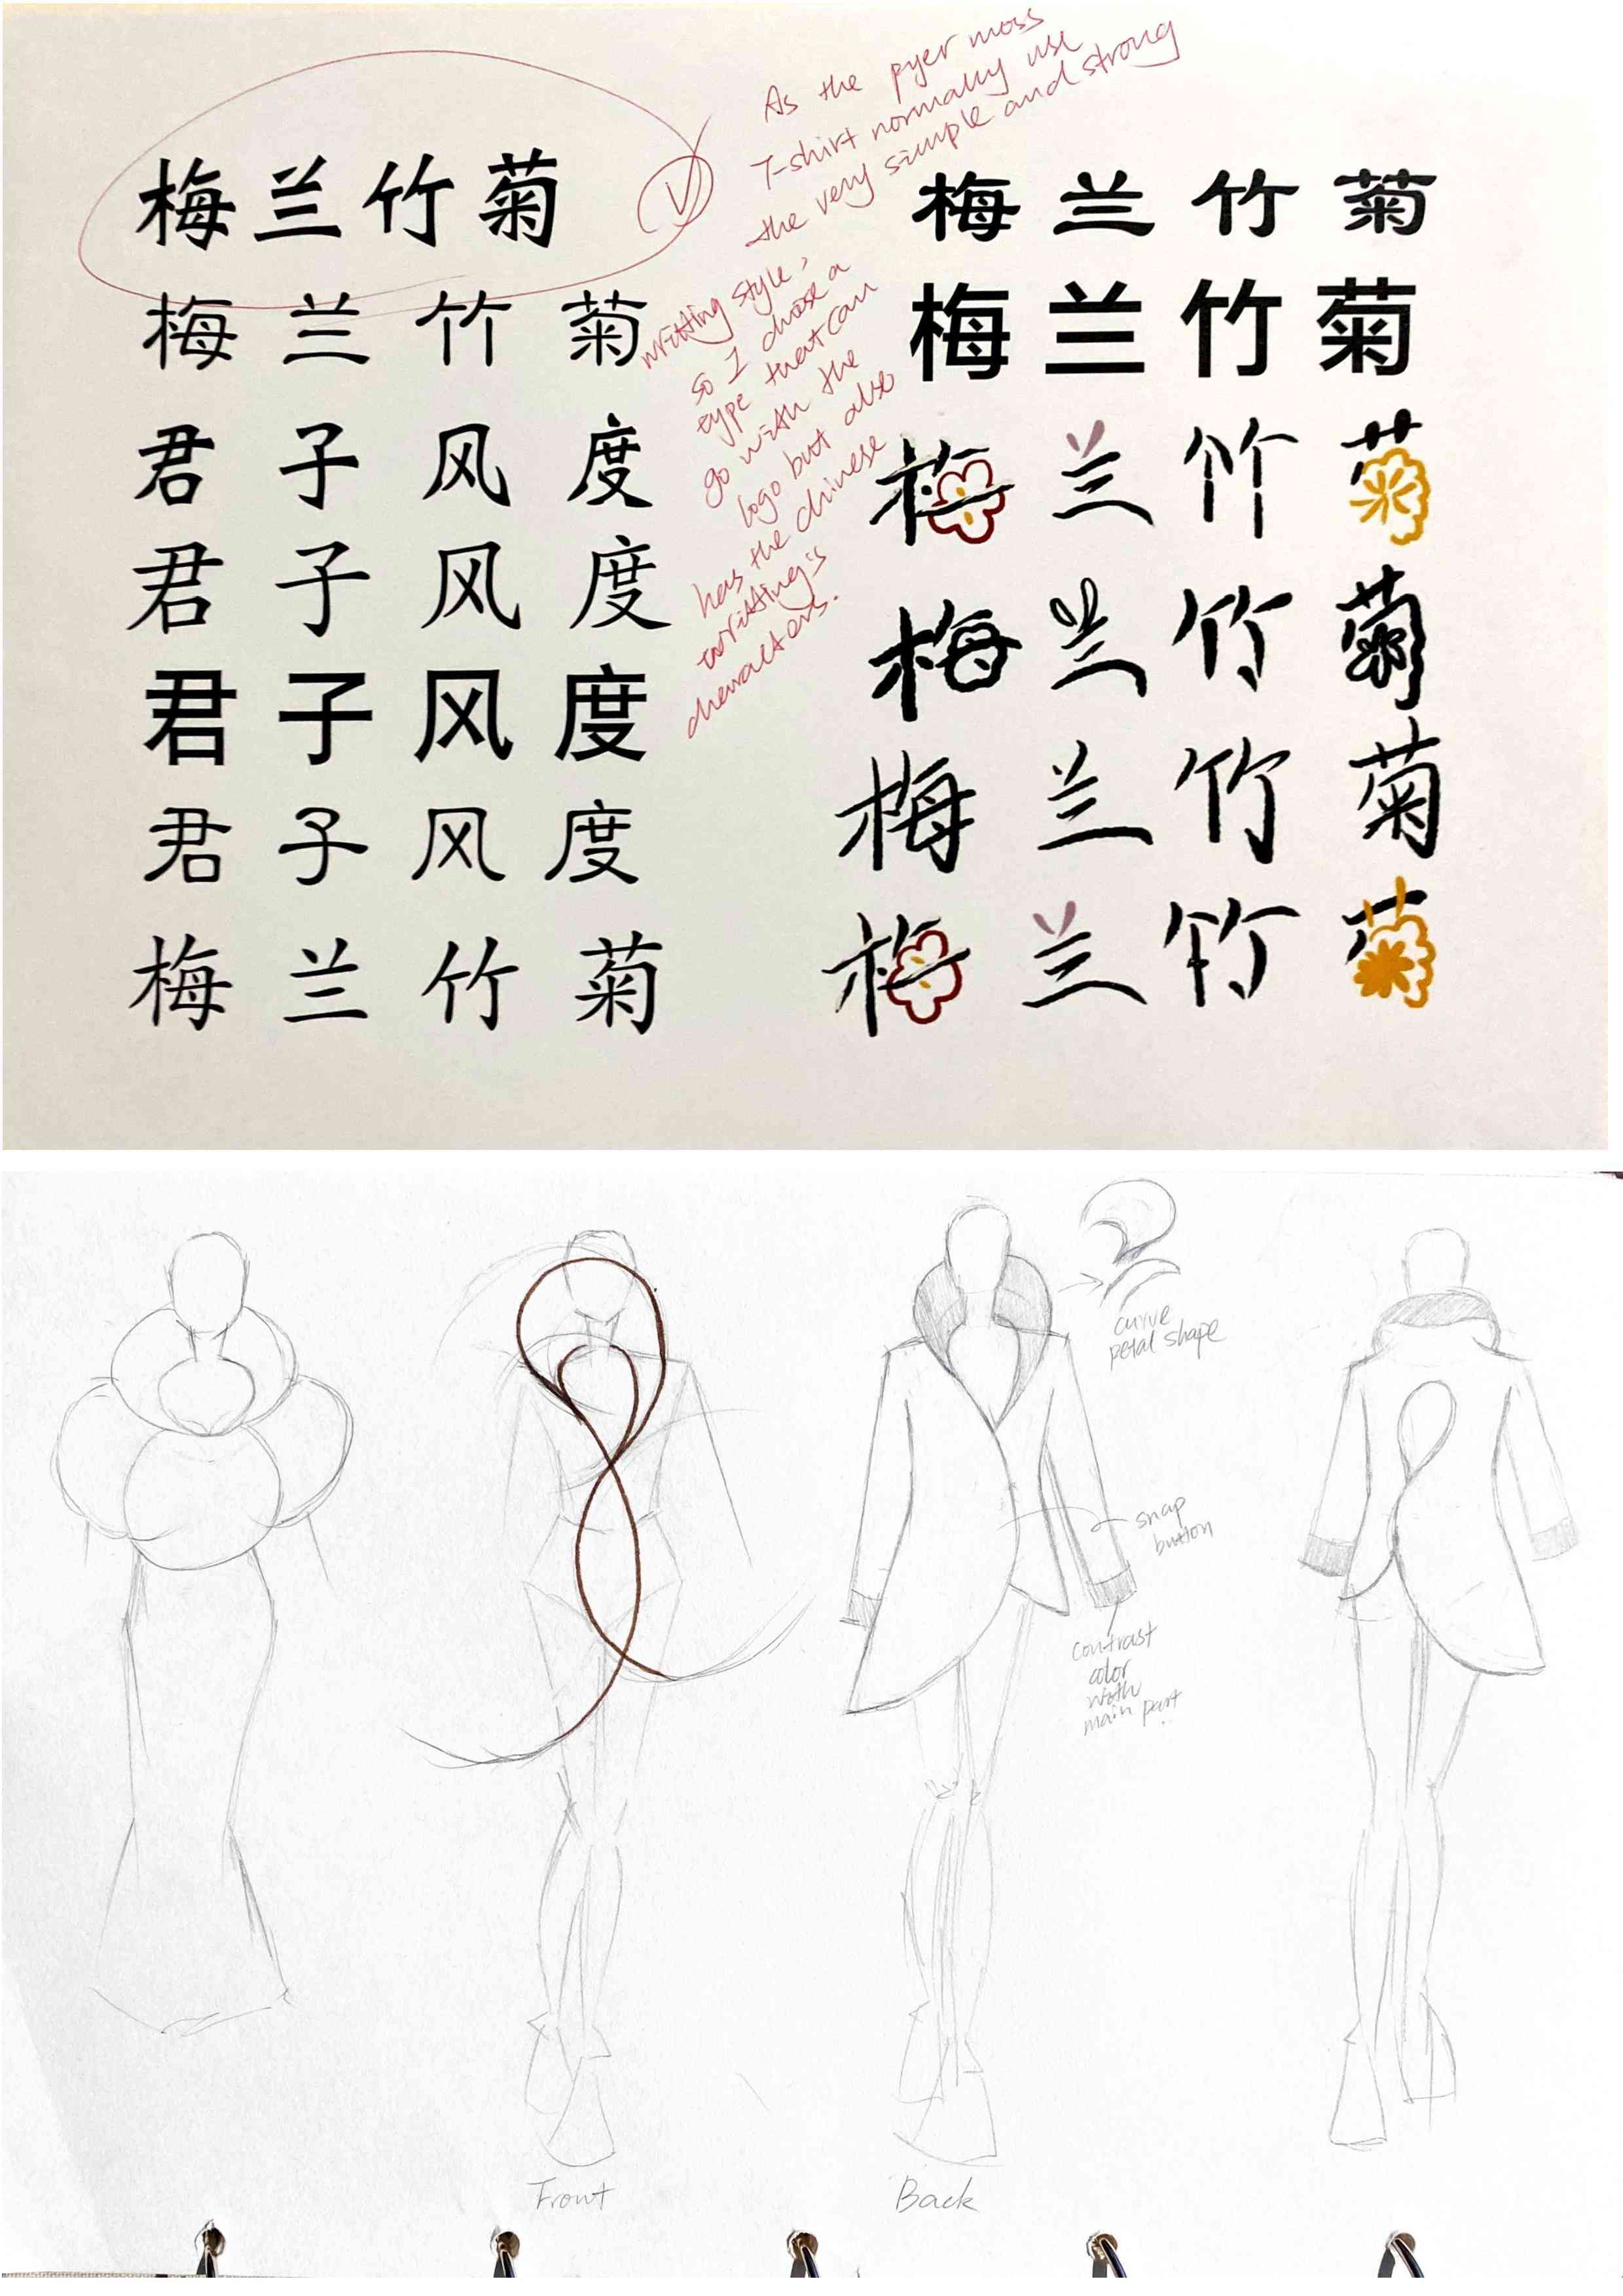 梅兰竹菊
梅 兰 竹 菊
君 子 风 度
君 子 风 度
君 子 风 度
君 子 风 度
梅 兰 竹 菊
As the pyer moss
T-shirt normally use
the very simple and strong
writting style,
so I choose a
type that can
go with the
logo but also
has the chinese
writting's
characters.
梅 兰 竹 菊
梅 兰 竹 菊
梅 兰 竹 菊
梅 兰 竹 菊
梅 兰 竹 菊
梅 兰 竹 菊
curve
petal shape
snap
button
contrast
color
with
main part
Front
Back